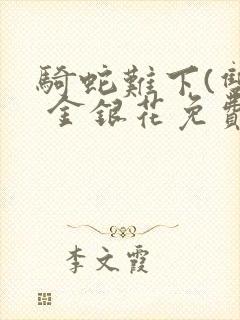 騎蛇難下(雙
金銀花免費
李文霞